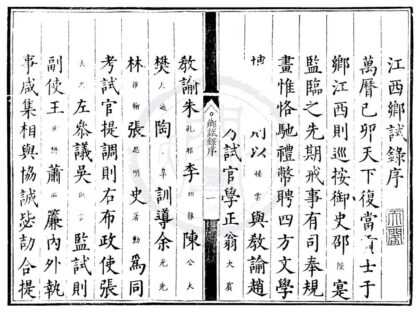 江西鄉試錄序
萬曆己卯天下復當貢士于
鄉江西則巡按御史邵陛寔
監臨之先期戒事有司奉規
畫惟恪馳禮幣聘四方文學
以與教諭趙
乃試官學正翁大賓
鄉試錄序 一
教諭朱李陳
樊陶訓導余
林張史為同
考試官提調則右布政使張
左參議吳監試則
副使王蕭簾內外執
事咸集相與協誠毖劼合提